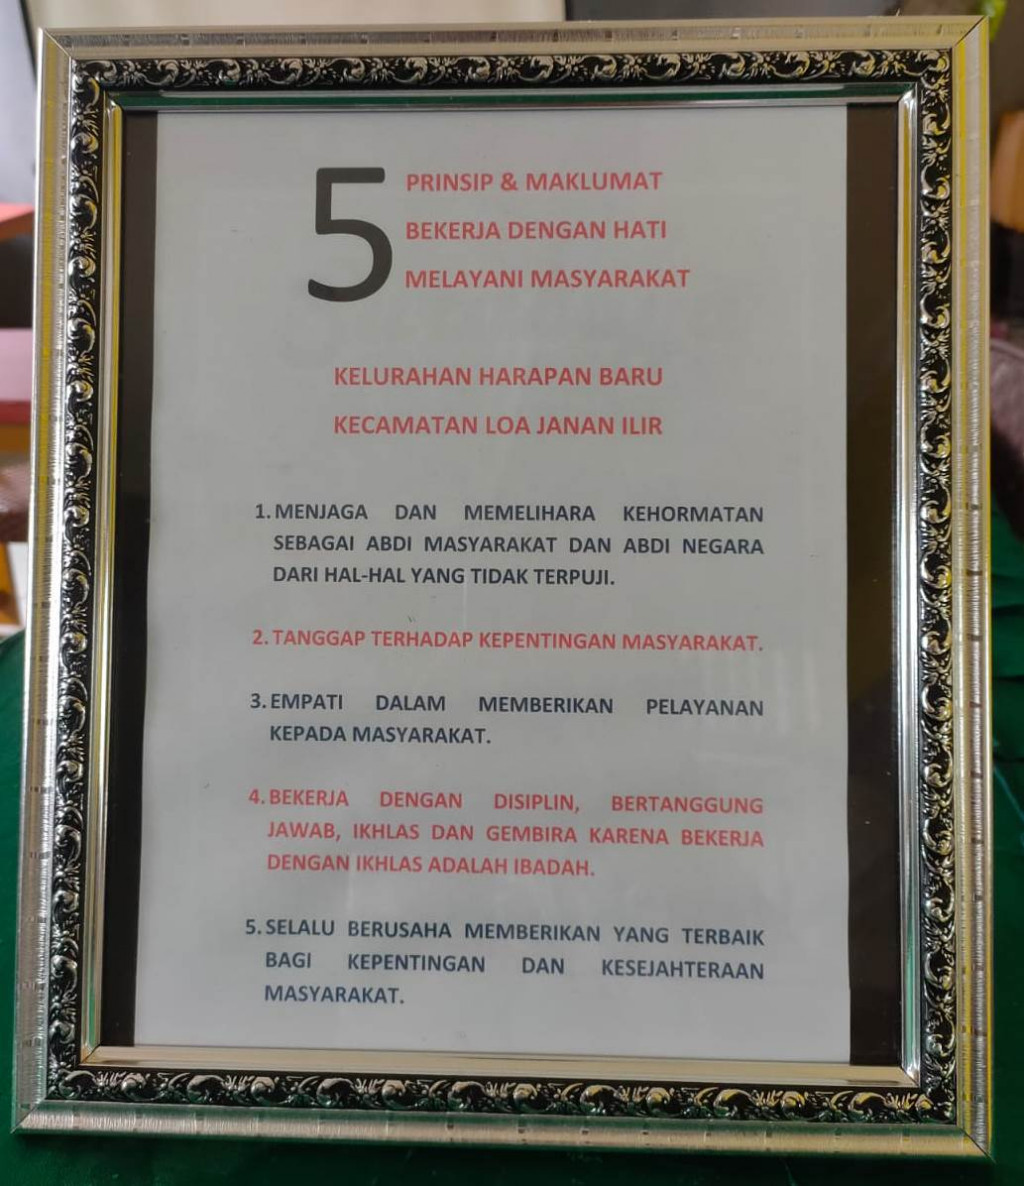 5 PRINSIP & MAKLUMAT
BEKERJA DENGAN HATI
MELAYANI MASYARAKAT
KELURAHAN HARAPAN BARU
KECAMATAN LOA JANAN ILIR
1. MENJAGA DAN MEMELIHARA KEHORMATAN
SEBAGAI ABDI MASYARAKAT DAN ABDI NEGARA
DARI HAL-HAL YANG TIDAK TERPUJI.
2. TANGGAP TERHADAP KEPENTINGAN MASYARAKAT.
3. EMPATI DALAM MEMBERIKAN PELAYANAN
KEPADA MASYARAKAT.
4. BEKERJA DENGAN DISIPLIN, BERTANGGUNG
JAWAB, IKHLAS DAN GEMBIRA KARENA BEKERJA
DENGAN IKHLAS ADALAH IBADAH.
5. SELALU BERUSAHA MEMBERIKAN YANG TERBAIK
BAGI KEPENTINGAN DAN KESEJAHTERAAN
MASYARAKAT.